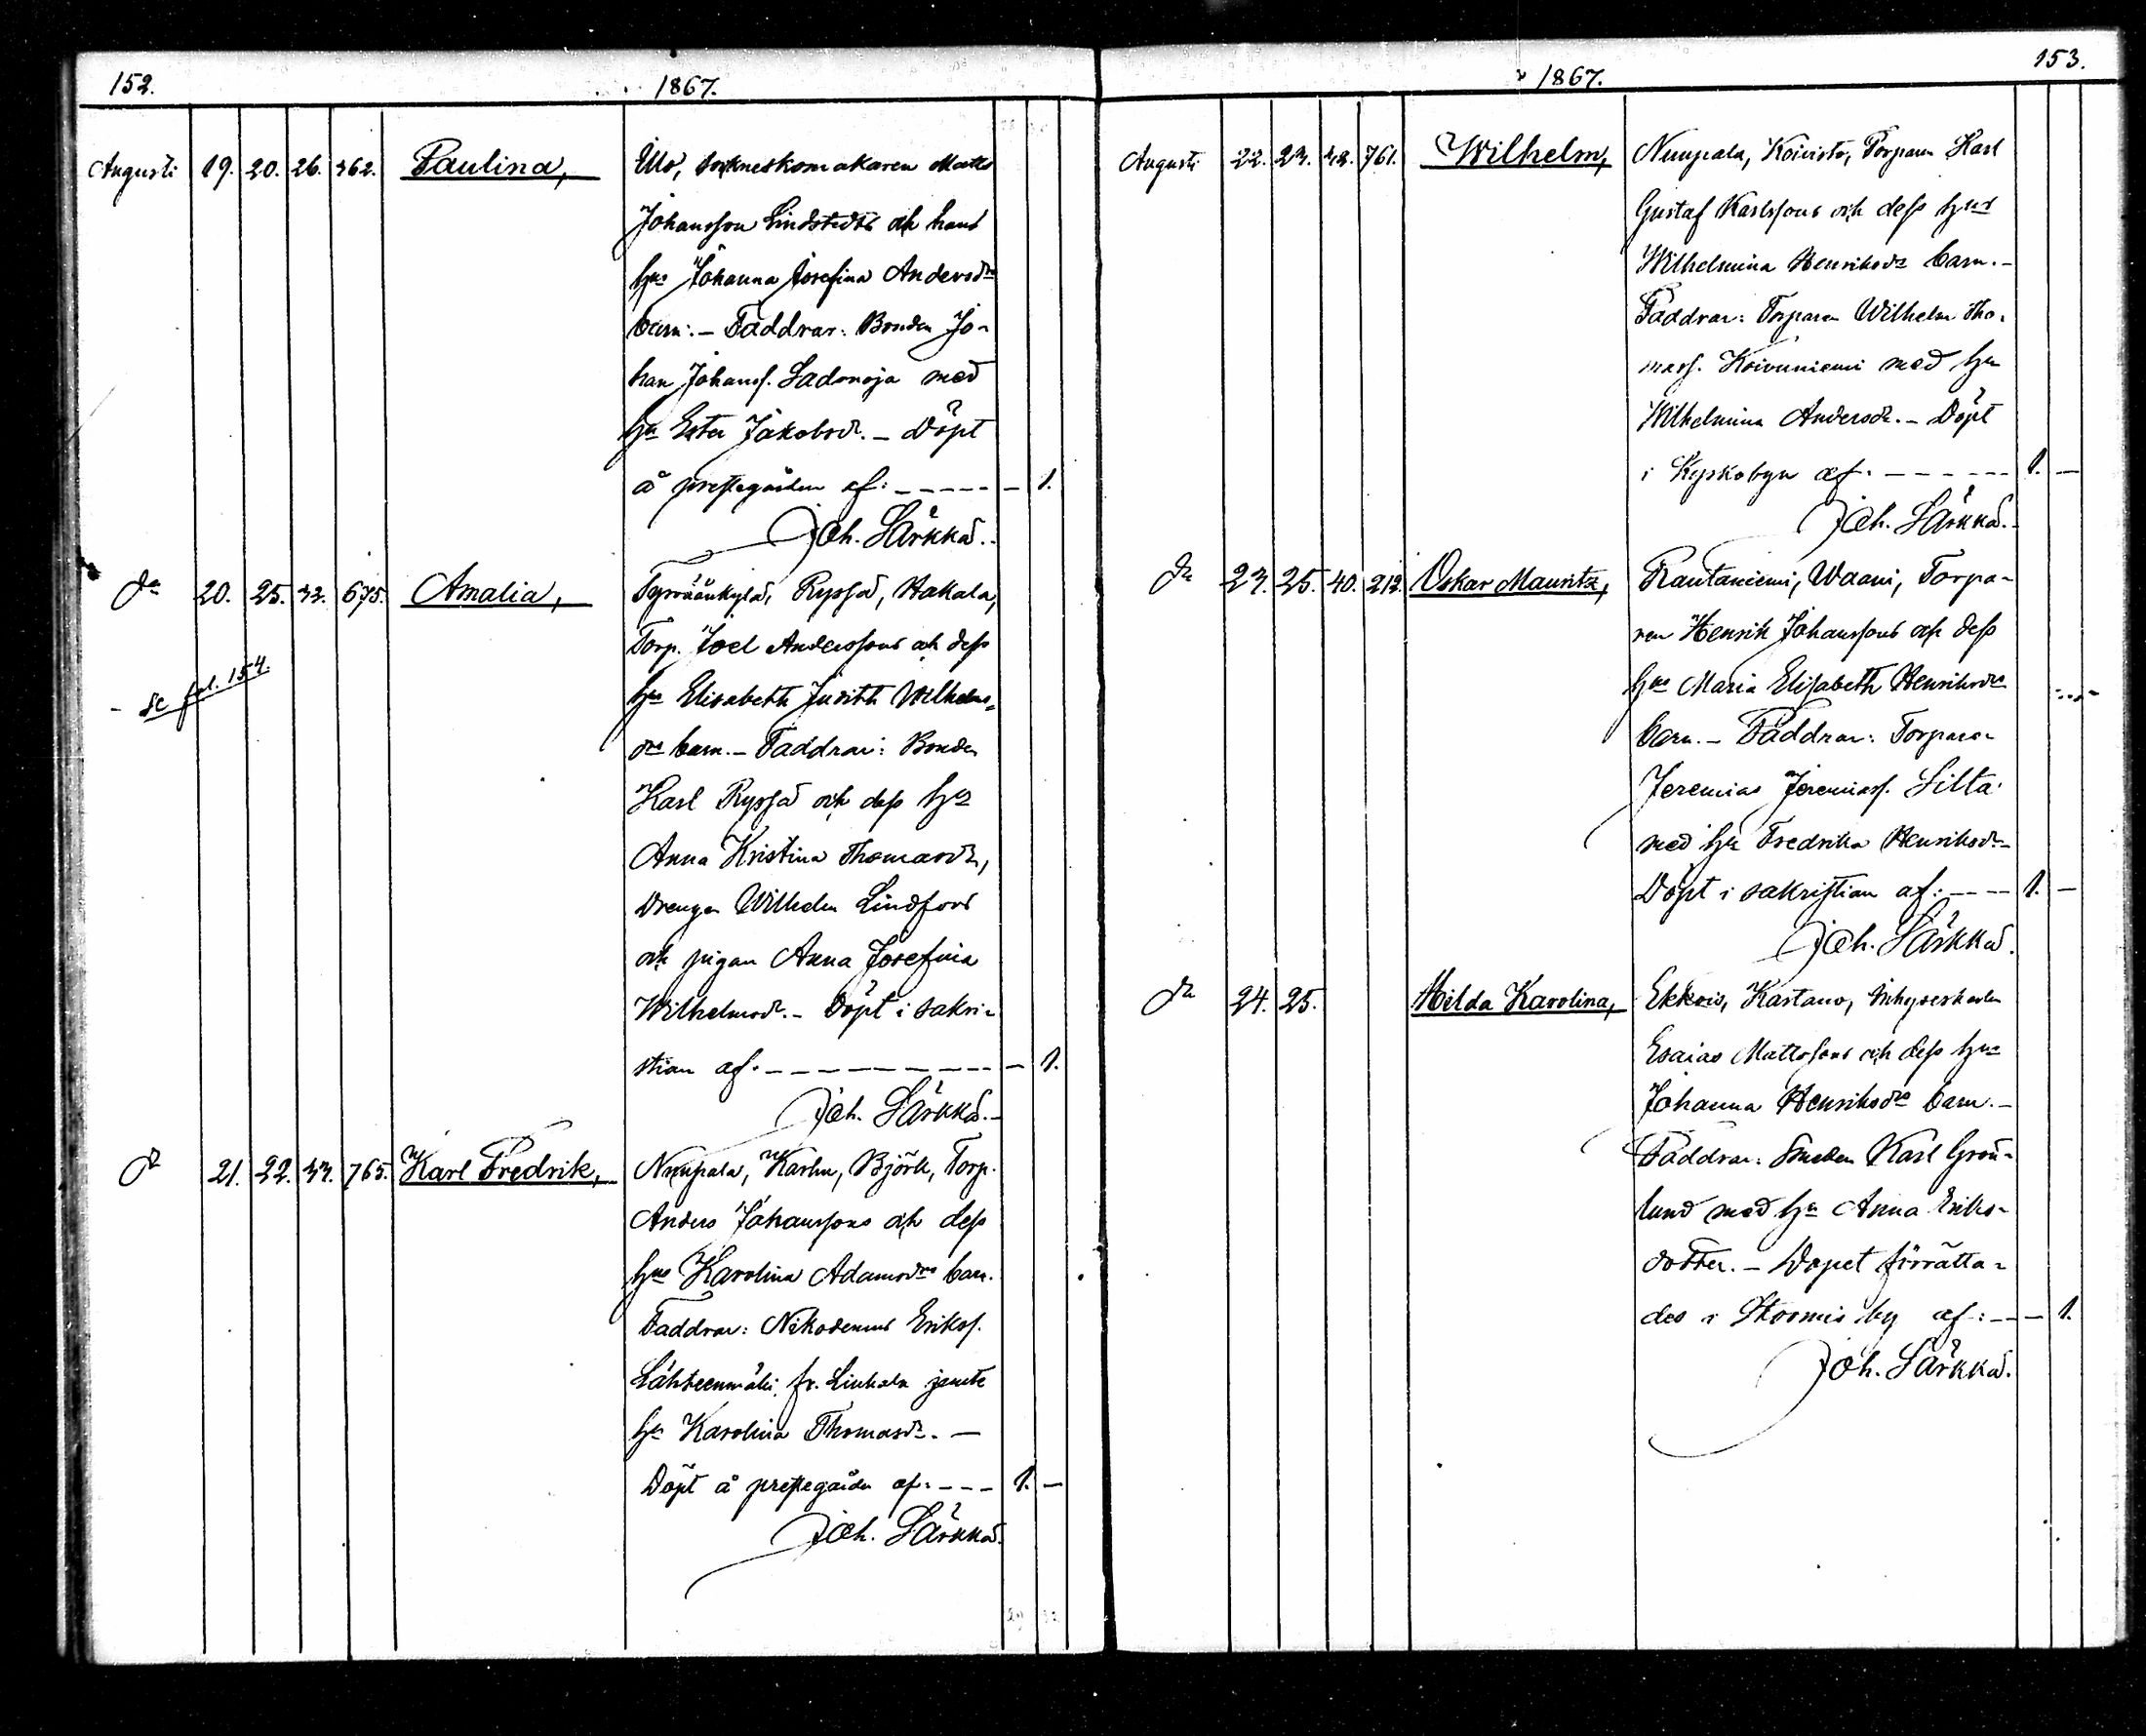 152.
1867.
Augusti 19. 20. 26. 362. Paulina, Ulvi, sockneskomakaren Matts
Johansson Lindstedts och hans
hus Johanna Josefina Andersdrs
barn. – Faddrar: Bonden Jo-
han Johanss. Sadonoja med
hu Ester Jakobsdr. – Döpt
å prestegården af: – – – – – – 1.
Joh. Särkkä.
do 20. 25. 32. 675. Amalia, Tyrväänkylä, Ryssä, Hakala,
Torp. Joel Anderssons och dess
- se fol. 154. hus Elisabeth Judith Wilhelms-
drs barn. – Faddrar: Bonden
Karl Ryssä och dess hu
Anna Kristina Thomasdr,
Drengen Wilhelm Lindfors
och pigan Anna Josefina
Wilhelmsdr. – Döpt i sakri-
stian af. – – – – – – – – – – 1.
Joh. Särkkä. –
do 21. 22. 765. Karl Fredrik, Nuupala, Karhu, Björk, Torp.
Anders Johanssons och dess
hus Karolina Adamsdrs barn.
Faddrar: Nikodemus Eriks.
Lähteenmäki fr. Liuhala jemte
hu Karolina Thomasdr. –
Döpt å prestegården af: – – – 1. –
Joh. Särkkä.
153.
1867.
Augusti 22. 23. 761. Wilhelm, Nuupala, Koivisto, Torparen Karl
Gustaf Karlssons och dess hus
Wilhelmina Henriksdrs barn. –
Faddrar: Torparen Wilhelm Tho-
mass. Koivuniemi med hu
Wilhelmina Andersdr. – Döpt
i Kyrkobyn af: – – – – – – 1. –
Joh. Särkkä.
do 23. 25. 40. 212. Oskar Mauritz, Rautaniemi, Waani, Torpa-
ren Henrik Johanssons och dess
hus Maria Elisabeth Henriksdrs
barn. – Faddrar: Torparen
Jeremias Jeremiass. Silta
med hu Fredrika Henriksdr. –
Döpt i sakristian af: – – – 1. –
Joh. Särkkä.
do 24. 25. Hilda Karolina, Ekkois, Kartano, Inhyseskarlen
Esaias Mattssons och dess hus
Johanna Henriksdrs barn. –
Faddrar: Smeden Karl Grön-
lund med hu Anna Eriks-
dotter. – Dopet förrätta-
des i Stormis by af: – – – 1.
Joh. Särkkä.